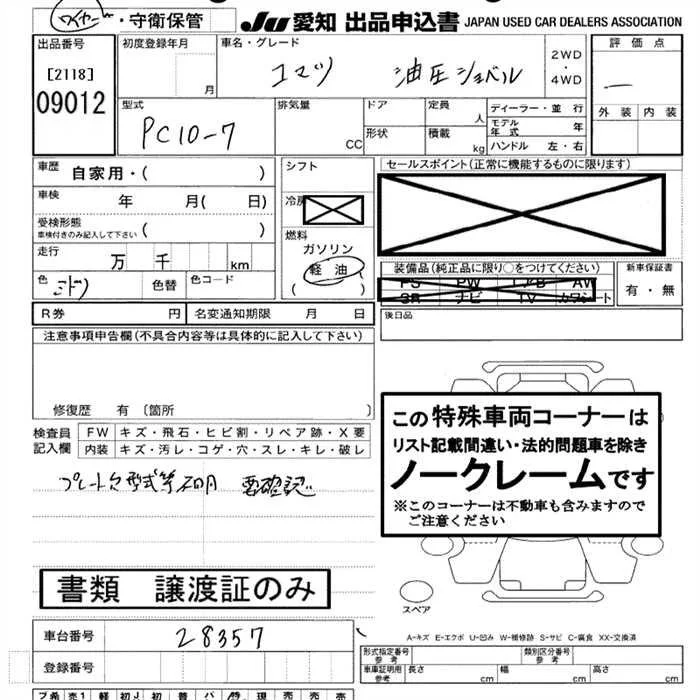 ワイヤー・守衛保管
JU 愛知 出品申込書 JAPAN USED CAR DEALERS ASSOCIATION
出品番号
[2118]
09012
初度登録年月
月
車名・グレード
コマツ 油圧ショベル
2WD
・
4WD
評価点
外装 内装
型式
PC10-7
排気量
CC
ドア
形状
定員
人
積載
kg
ディーラー・並行
モデル年式 年
ハンドル 左・右
車歴 自家用・( )
車検 年 月( 日)
受検形態
車検付きのみ記入して下さい ( )
走行 万 千 km
色 ミドリ 色替 色コード
シフト
冷房
燃料
ガソリン
軽油
( )
セールスポイント(正常に機能するものに限ります)
装備品(純正品に限り○をつけてください)
PS PW エアB AW
SR ナビ TV カワシート
新車保証書
有・無
R券 円 名変通知期限 月 日
後日品
注意事項申告欄(不具合内容等は具体的に記入して下さい)
修復歴 有 [箇所 ]
検査員記入欄
FW キズ・飛石・ヒビ割・リペア跡・X要
内装 キズ・汚レ・コゲ・穴・スレ・キレ・破レ
プレート欠 型式等不明 要確認
この特殊車両コーナーは
リスト記載間違い・法的問題車を除き
ノークレームです
※このコーナーは不動車も含みますので
ご注意ください
スペア
書類 譲渡証のみ
車台番号 28357
登録番号
A-キズ E-エクボ U-凹み W-補修跡 S-サビ C-腐食 XX-交換済
形式指定番号
参考
類別区分番号
参考
車車証明用
参考
長さ cm 幅 cm 高さ cm